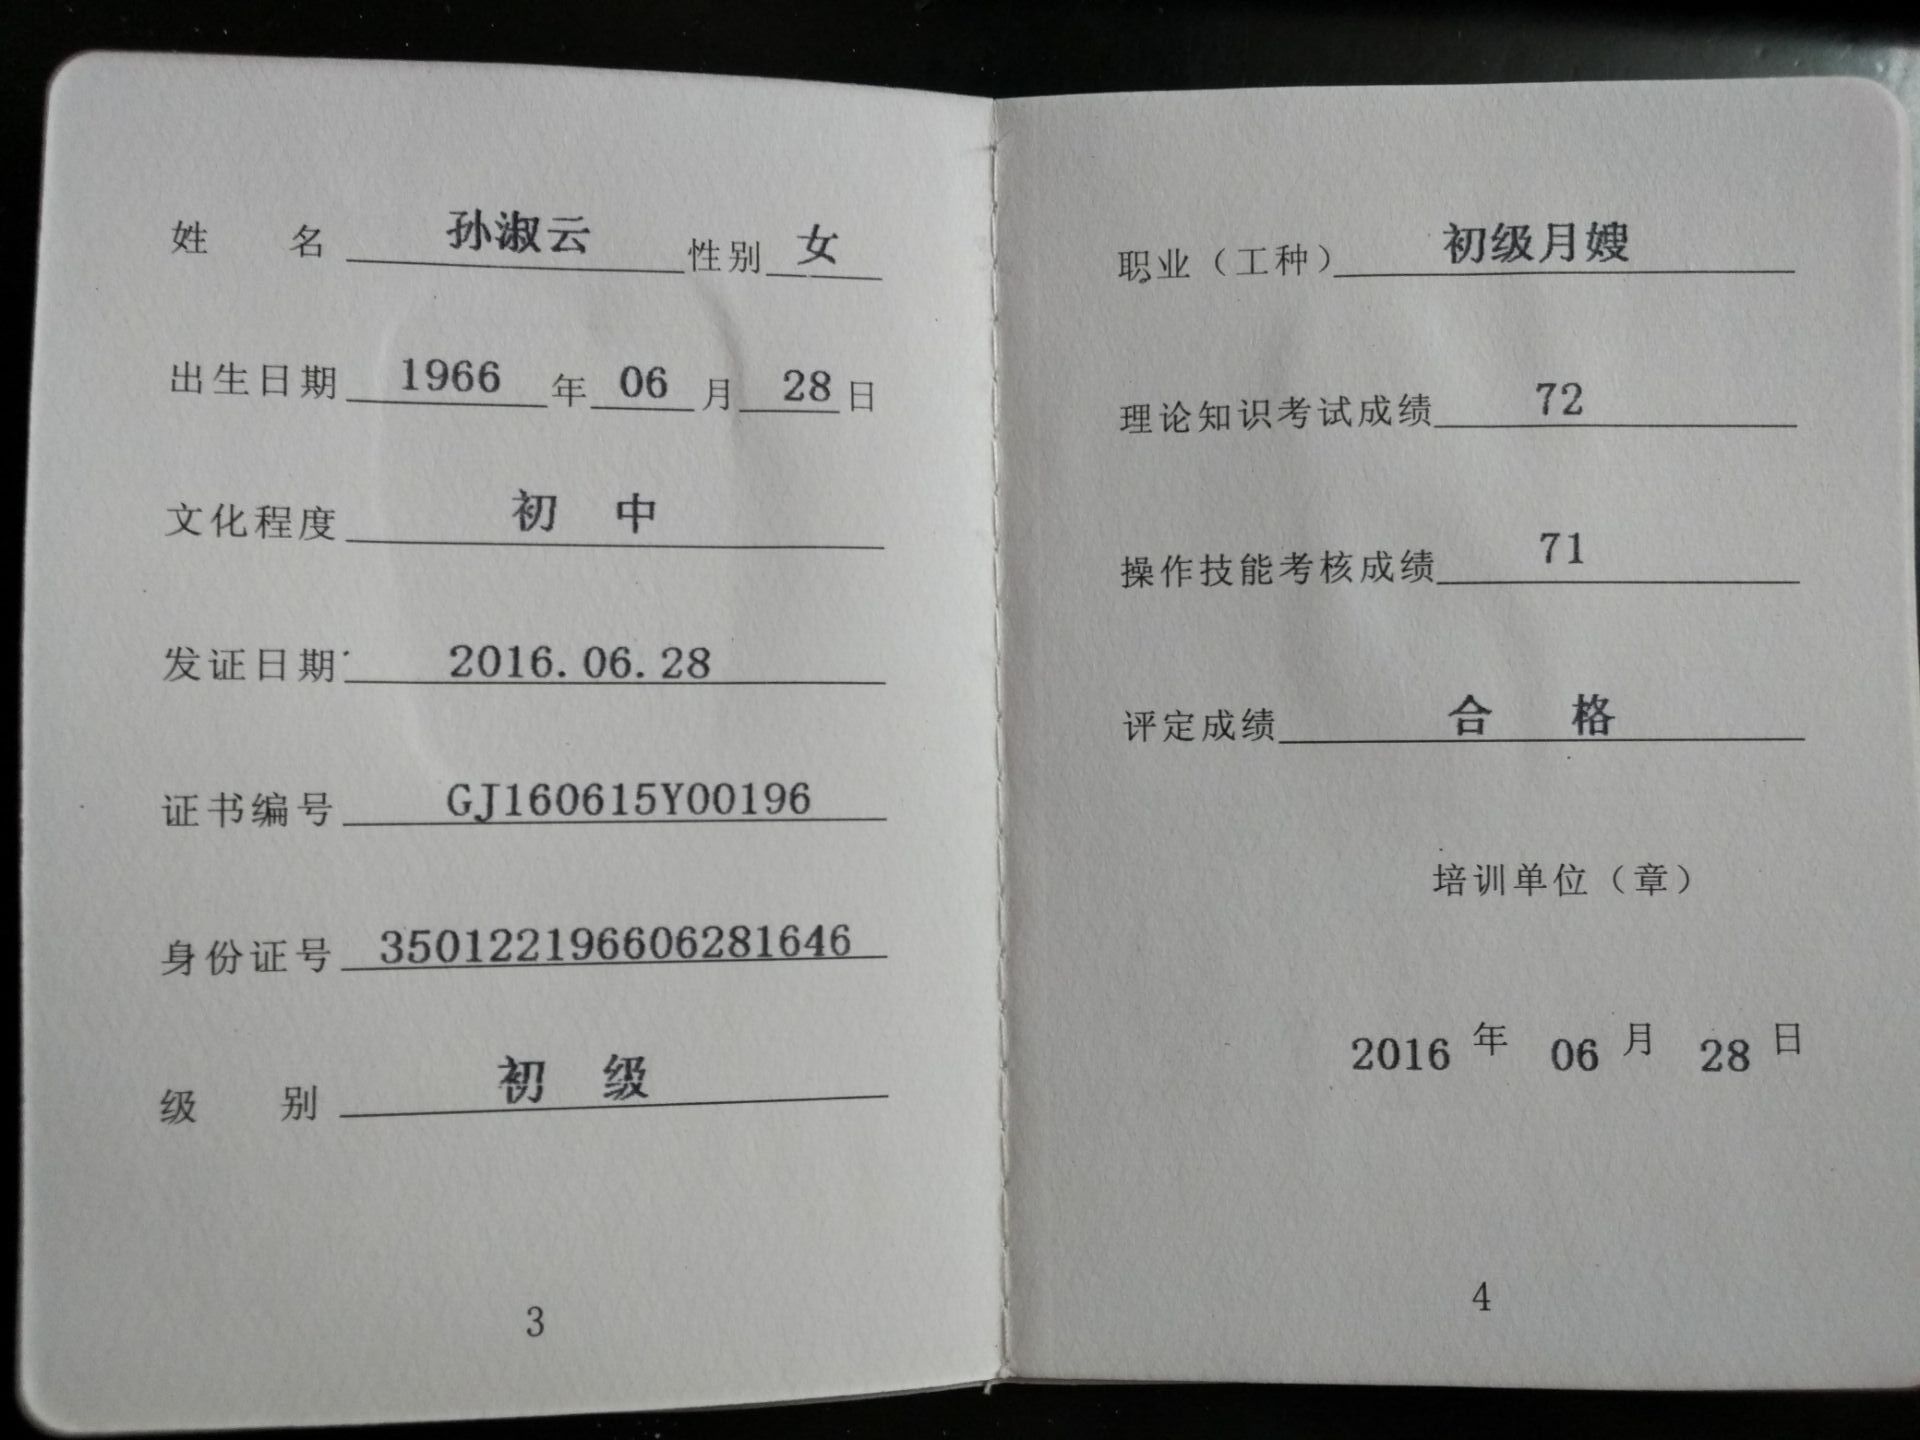 姓 名 孙淑云 性别 女
出生日期 1966 年 06 月 28 日
文化程度 初 中
发证日期 2016.06.28
证书编号 GJ160615Y00196
身份证号 350122196606281646
级 别 初 级
3
职业（工种） 初级月嫂
理论知识考试成绩 72
操作技能考核成绩 71
评定成绩 合 格
培训单位（章）
2016 年 06 月 28 日
4